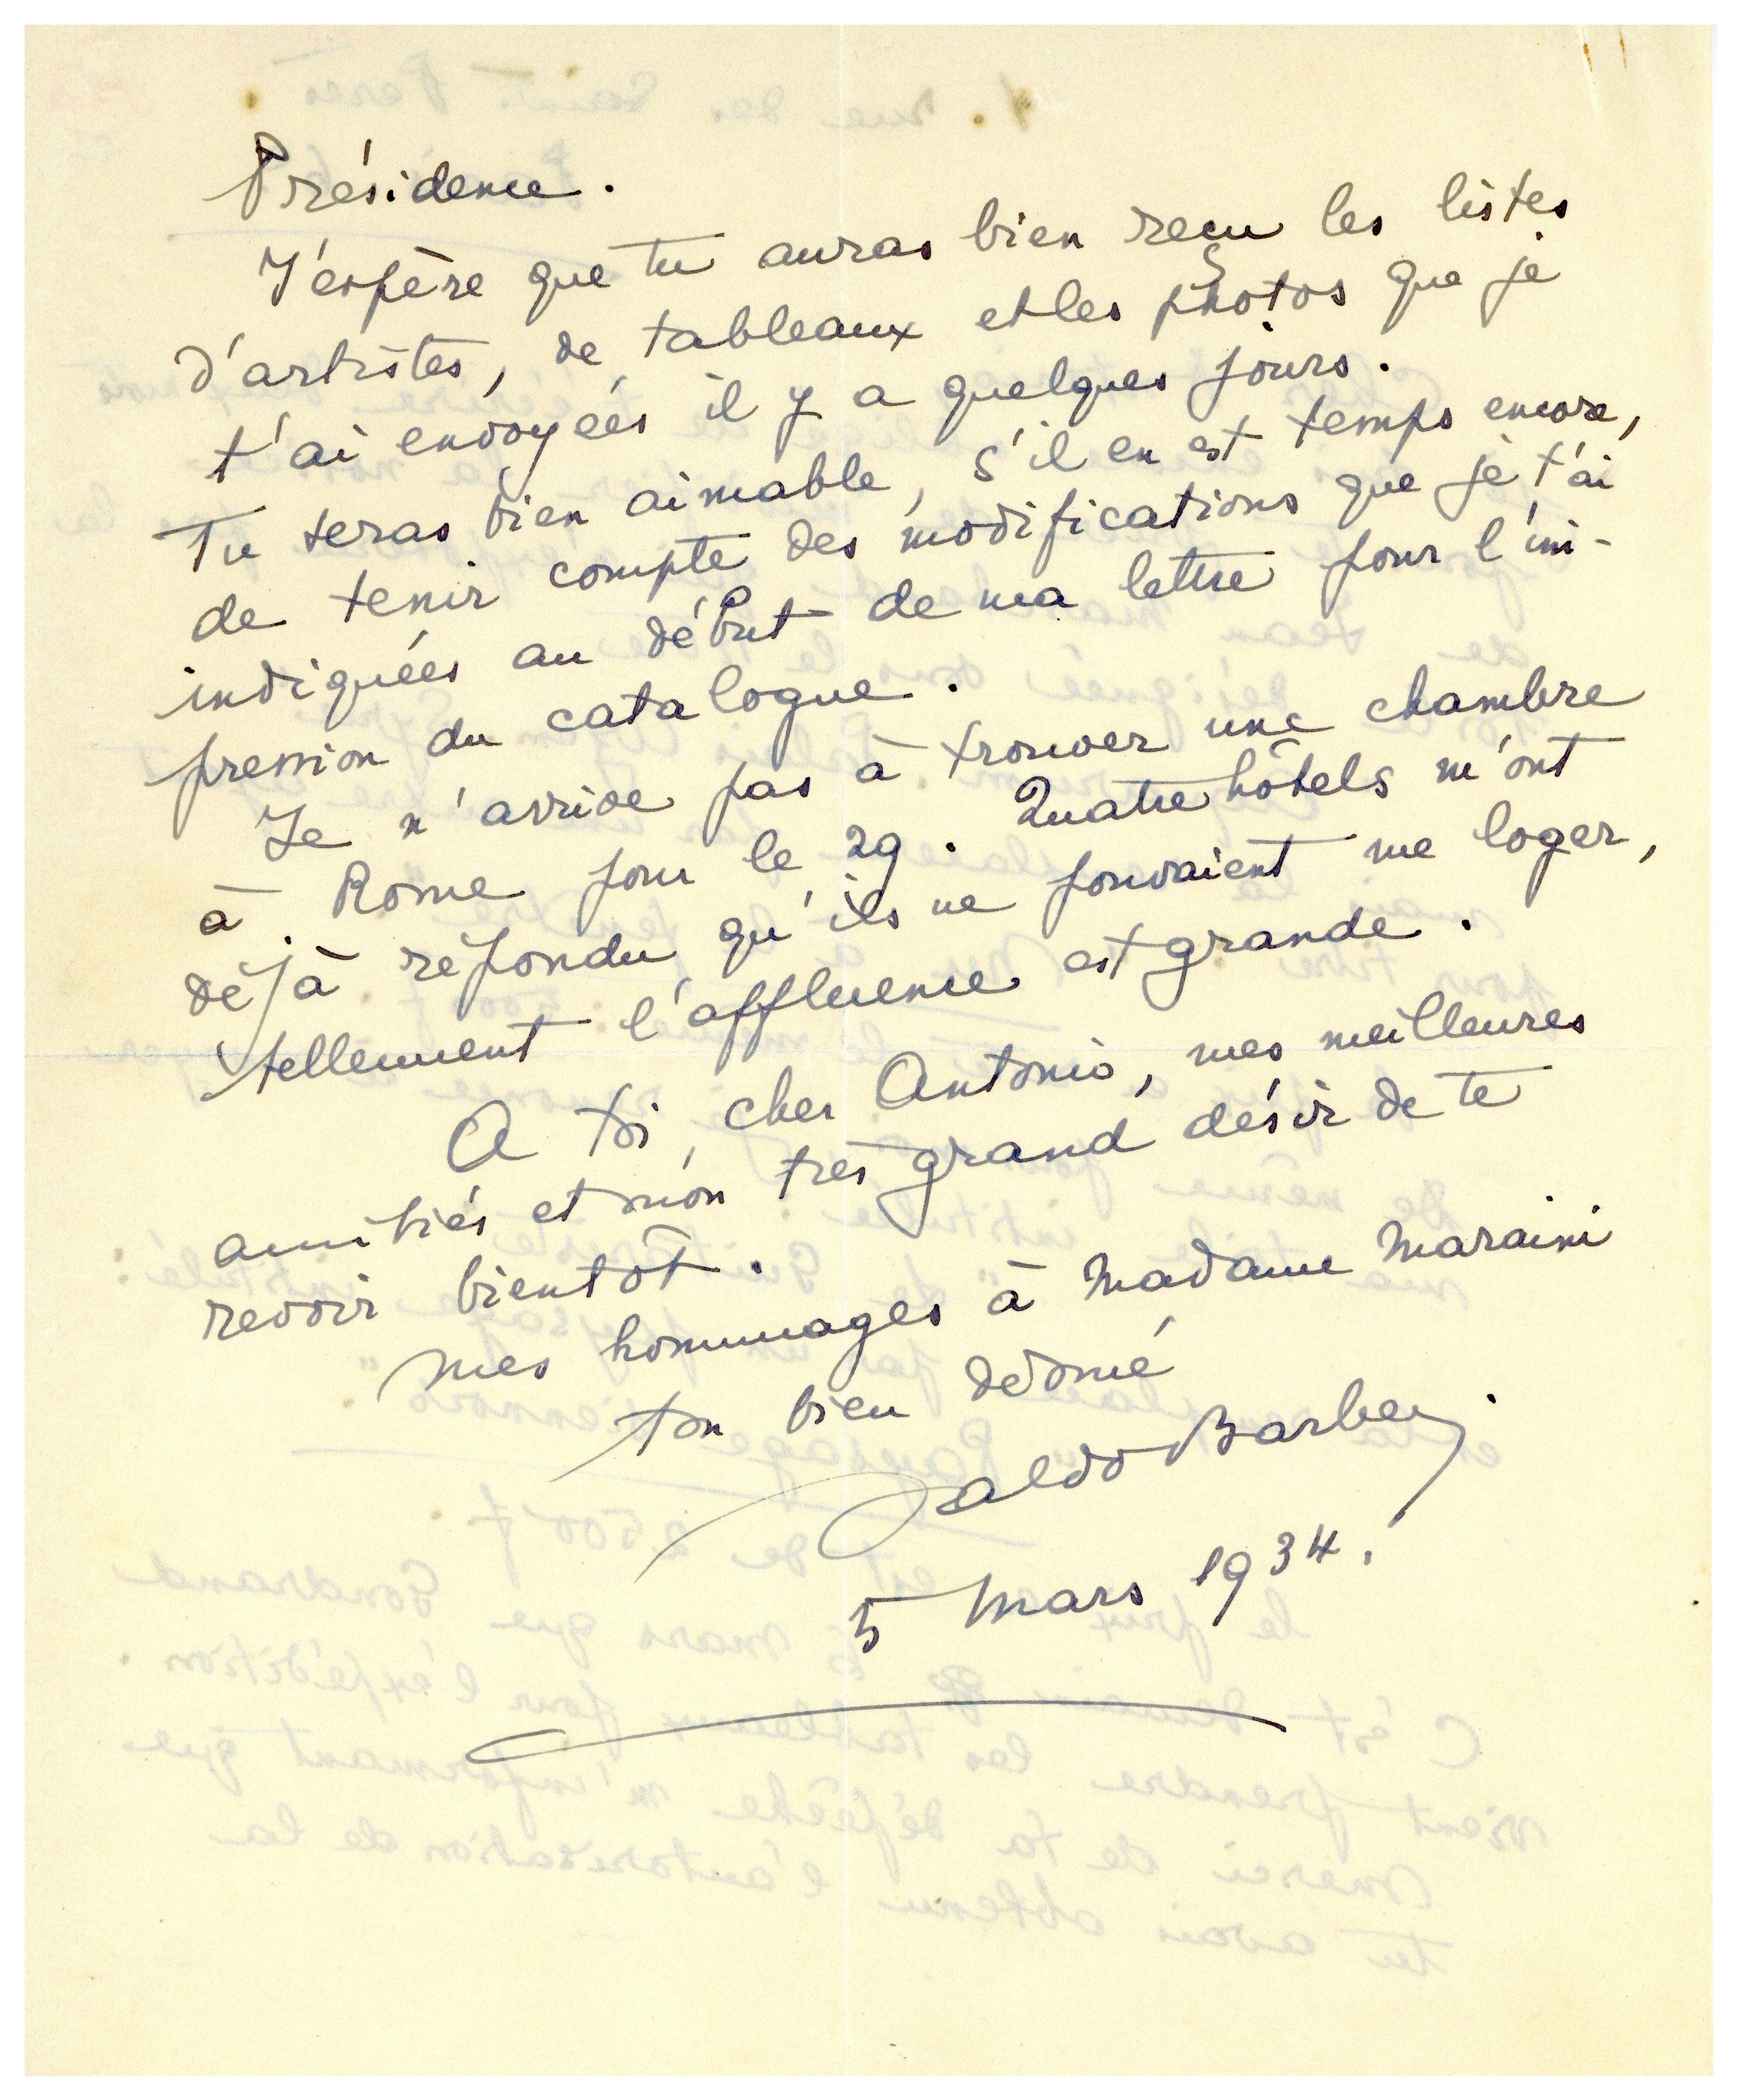 Présidence.
J'espère que tu auras bien reçu les listes
d'artistes, de tableaux et les photos que je
t'ai envoyées il y a quelques jours.
Tu seras bien aimable, s'il en est temps encore,
de tenir compte des modifications que je t'ai
indiquées au début de ma lettre pour l'im-
pression du catalogue.
Je n'arrive pas à trouver une chambre
à Rome pour le 29. Quatre hôtels m'ont
déjà répondu qu'ils ne pouvaient me loger,
tellement l'affluence est grande.
A toi, cher Antonio, mes meilleures
amitiés et mon très grand désir de te
revoir bientôt.
Mes hommages à Madame Maraini
ton bien dévoué
Waldo Barbey.
5 Mars 1934.